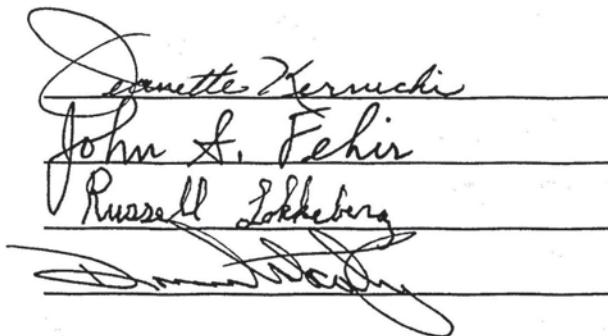 Jeanette Kernicki
John A. Fehir
Russell Lokkeberg